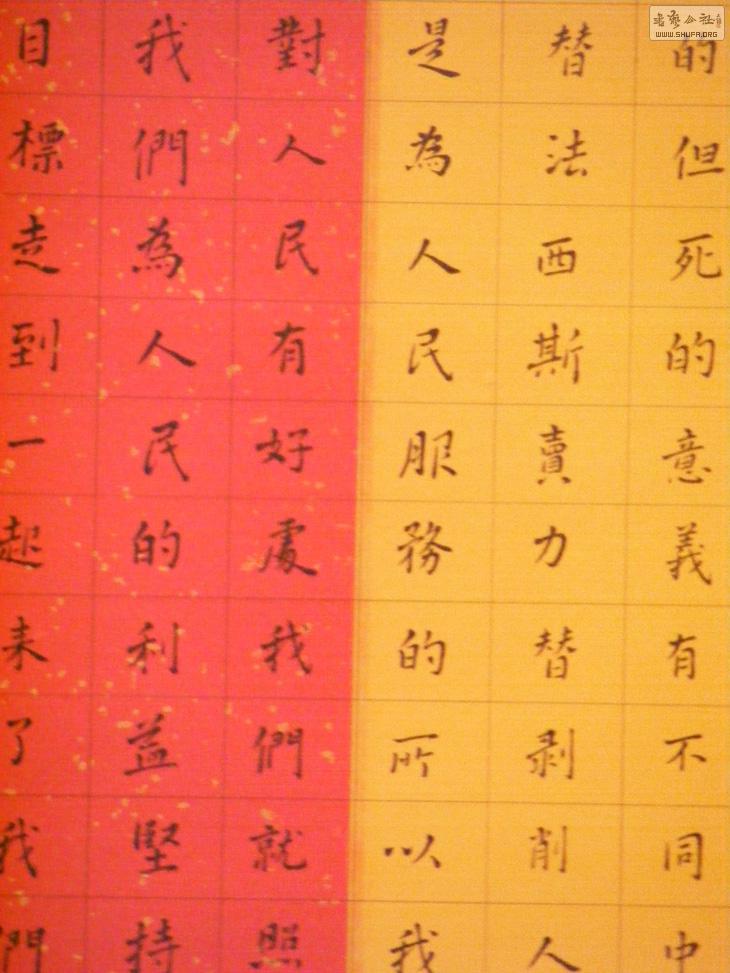 的但死的意義有不同中
替法西斯賣力替剥削人
是為人民服務的所以我
對人民有好處我們就照
我們為人民的利益堅持
目標走到一起来了我們
书法公社
WWW.SHUFA.ORG